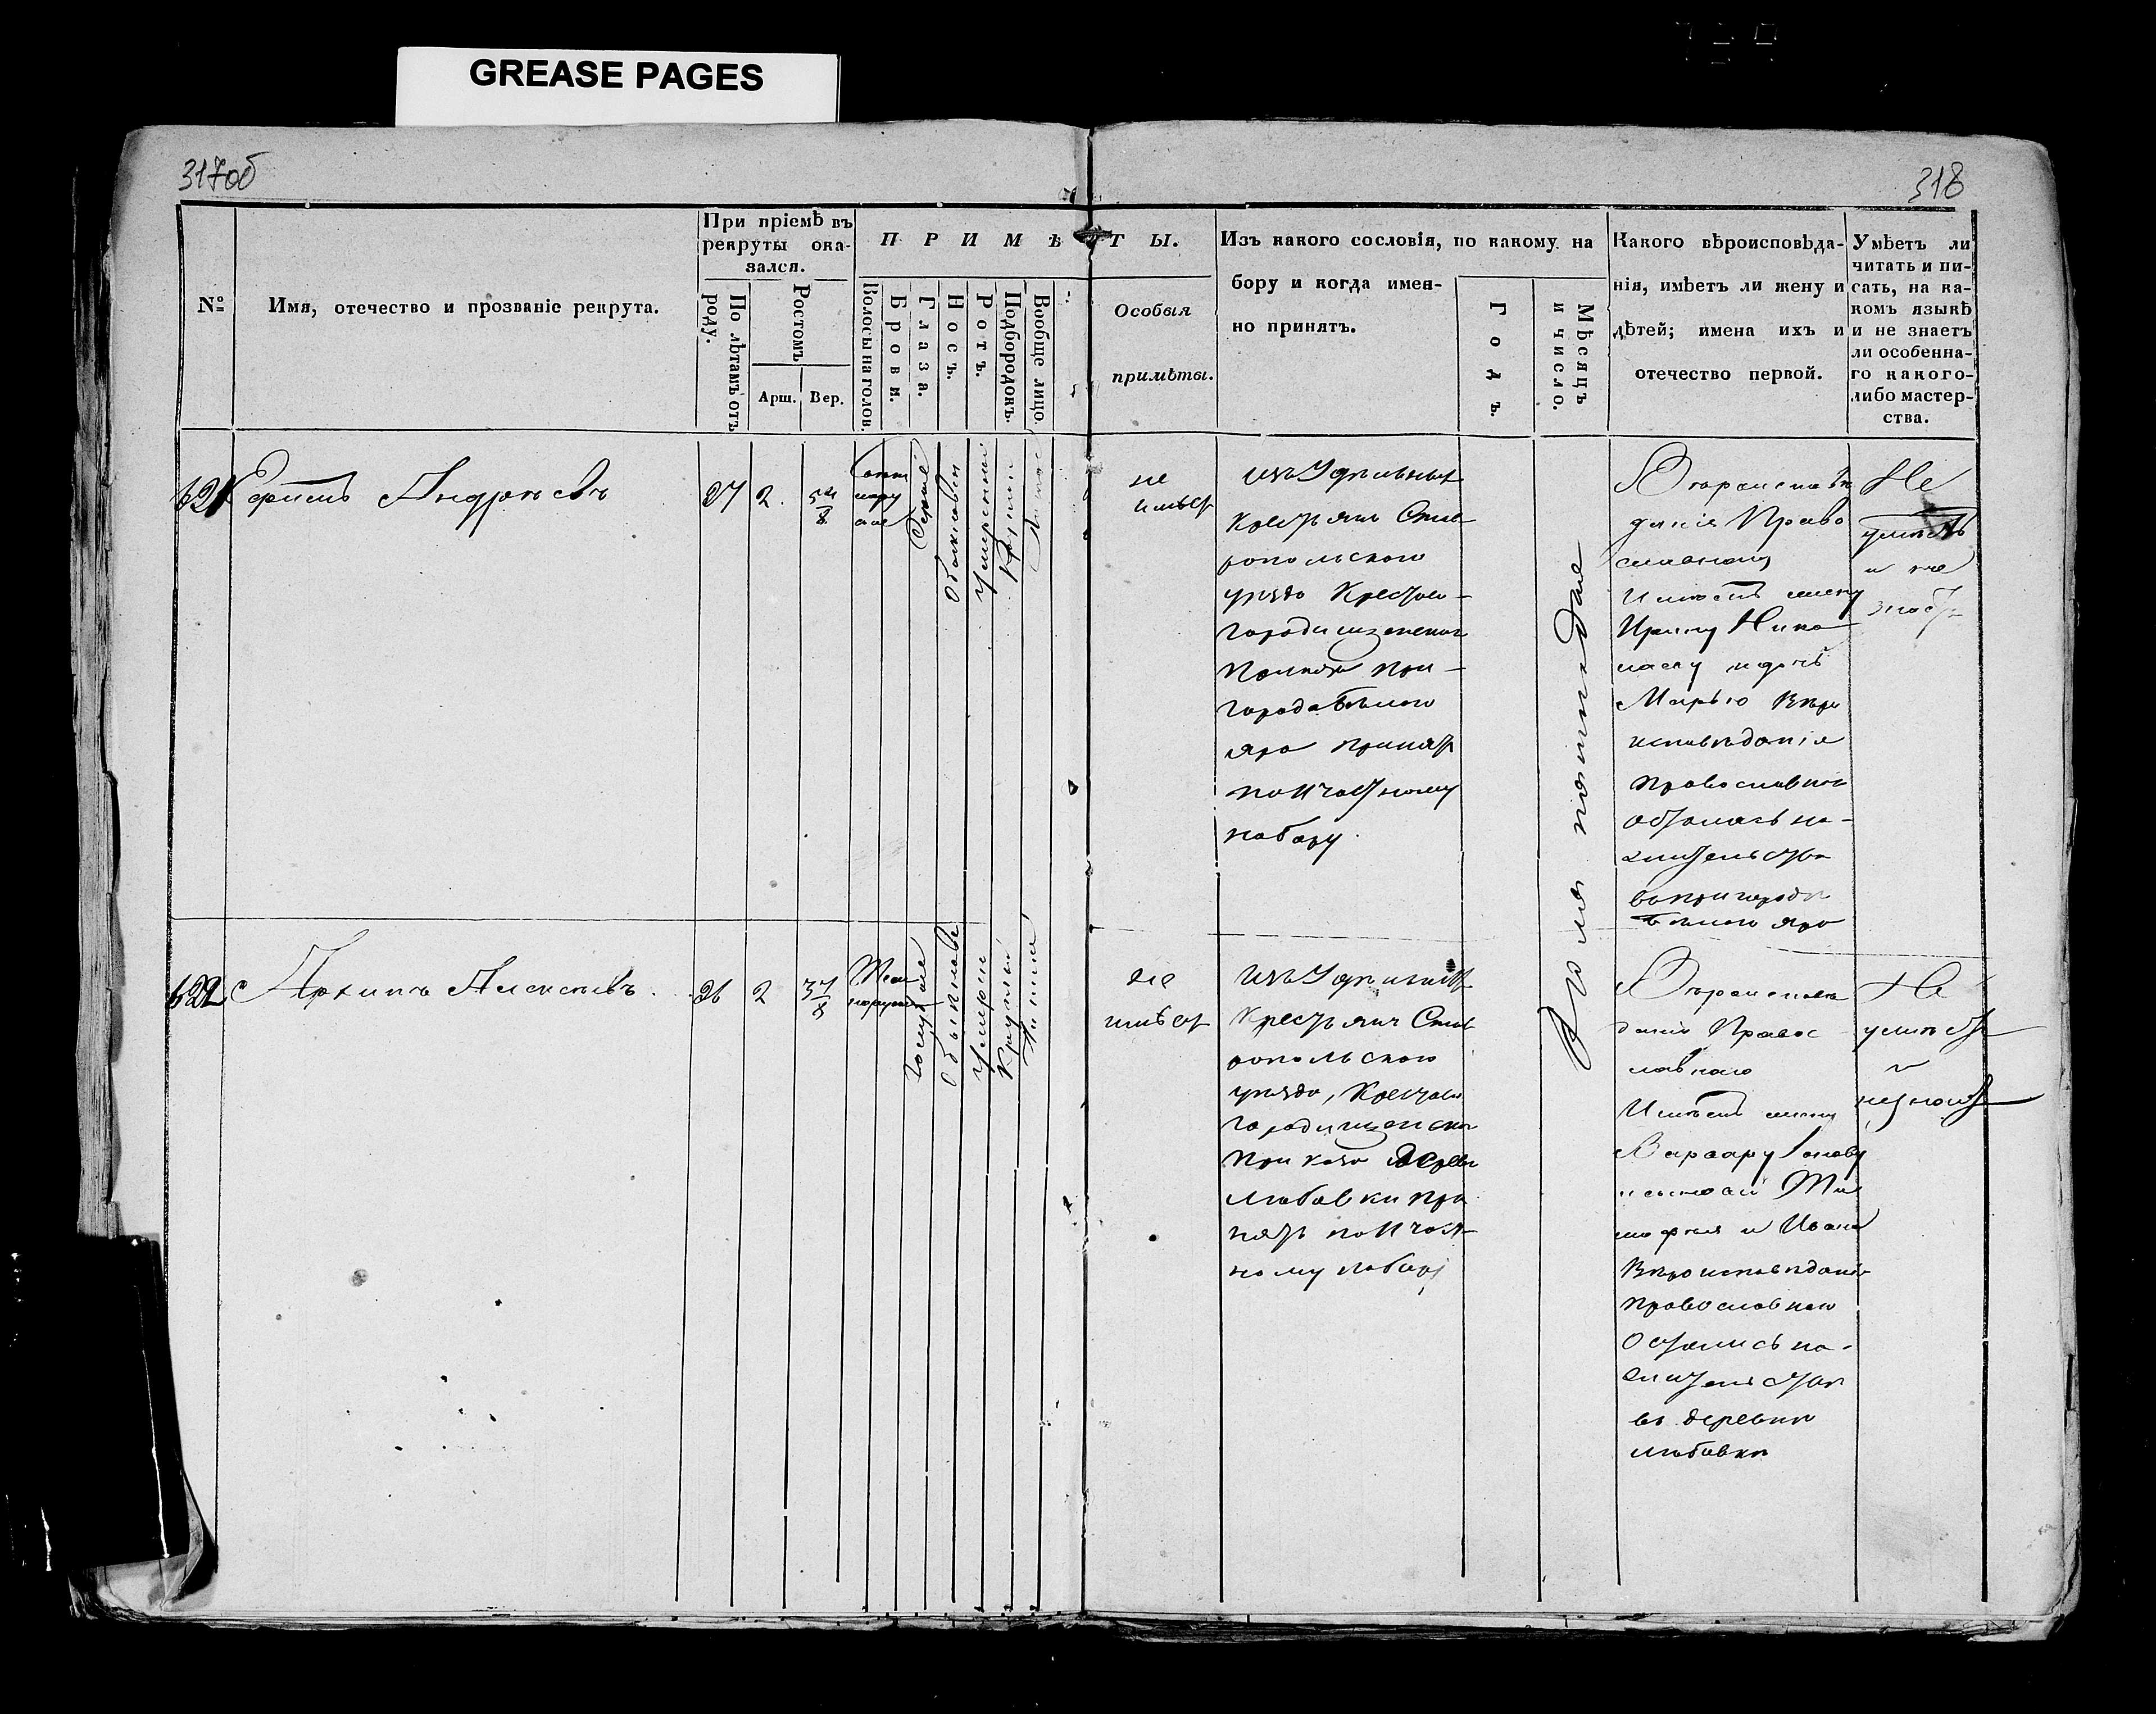 GREASE PAGES
317об
318
№
Имя, отечество и прозваніе рекрута.
При пріемѣ въ
рекруты ока-
зался.
По лѣтамъ отъ
роду.
Ростомъ
Арш.
Вер.
ПРИМѢТЫ.
Волосы на голов.
Брови.
Глаза.
Носъ.
Ротъ.
Подбородокъ.
Вообще лицо.
Особыя
примѣты.
Изъ какого сословія, по какому на
бору и когда имен-
но принятъ.
Годъ.
Мѣсяцъ
и число.
Какого вѣроисповѣда-
нія, имѣетъ ли жену и
дѣтей; имена ихъ и
отечество первой.
Умѣетъ ли
читать и пи-
сать, на ка-
комъ языкѣ
и не знаетъ
ли особенна-
го какого-
либо мастер-
ства.
621
Андреевъ
27
2.
Серые
Обыкновен
умеренный
не
имѣет
изъ Удельных
Крестьян Став
ропольского
уезда Крестово-
городищенского
При-
города белого
яра принят
по И частному
набору.
Вероисповѣ
дания Право
славного
Имеет жену
Ирину Нико
лаеву и дочь
Марью Веро
исповедания
православного
остались на-
жительстве
в пригороде
белого яра
Не
умеетъ
и не
знает
622
Архипъ Алексеевъ.
26
2
3 7/8
Голубые
обыкнове
умерен
Круглый
не
имѣет
изъ Удельных
Крестьян Став
ропольского
уезда, Крестово
городищенского
Приказа дерев
Любовки при
нят по И част-
ному набору
Вероисповѣ
дания Правос
лавного
Имеет жену
Варвару
и сыновей Ти
мофея и Ивана
Вероисповедания
православного
Остались на-
жительстве
въ деревни
Любовки
Не
умеет
и
не знает